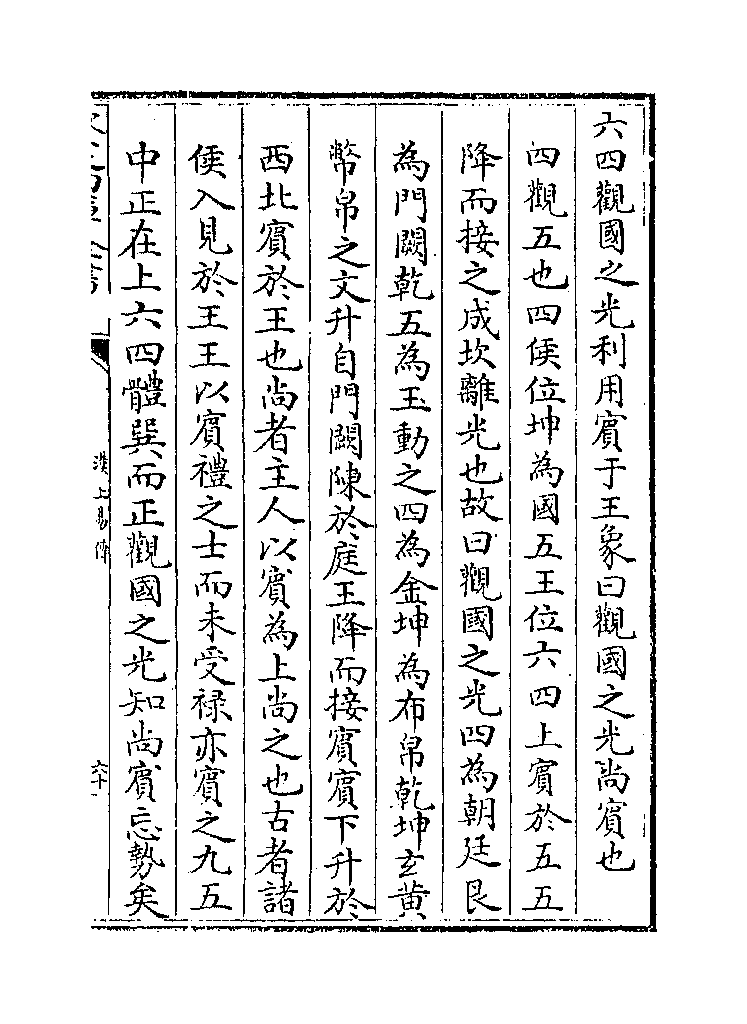 六四觀國之光利用賓于王象曰觀國之光尚賓也
四觀五也四侯位坤為國五王位六四上賓於五五
降而接之成坎離光也故曰觀國之光四為朝廷艮
為門闕乾五為玉動之四為金坤為布帛乾坤玄黄
幣帛之文升自門闕陳於庭王降而接賓賓下升於
西北賓於王也尚者主人以賓為上尚之也古者諸
侯入見於王王以賓禮之士而未受禄亦賓之九五
中正在上六四體巽而正觀國之光知尚賓忘勢矣
漢上易傳
六十